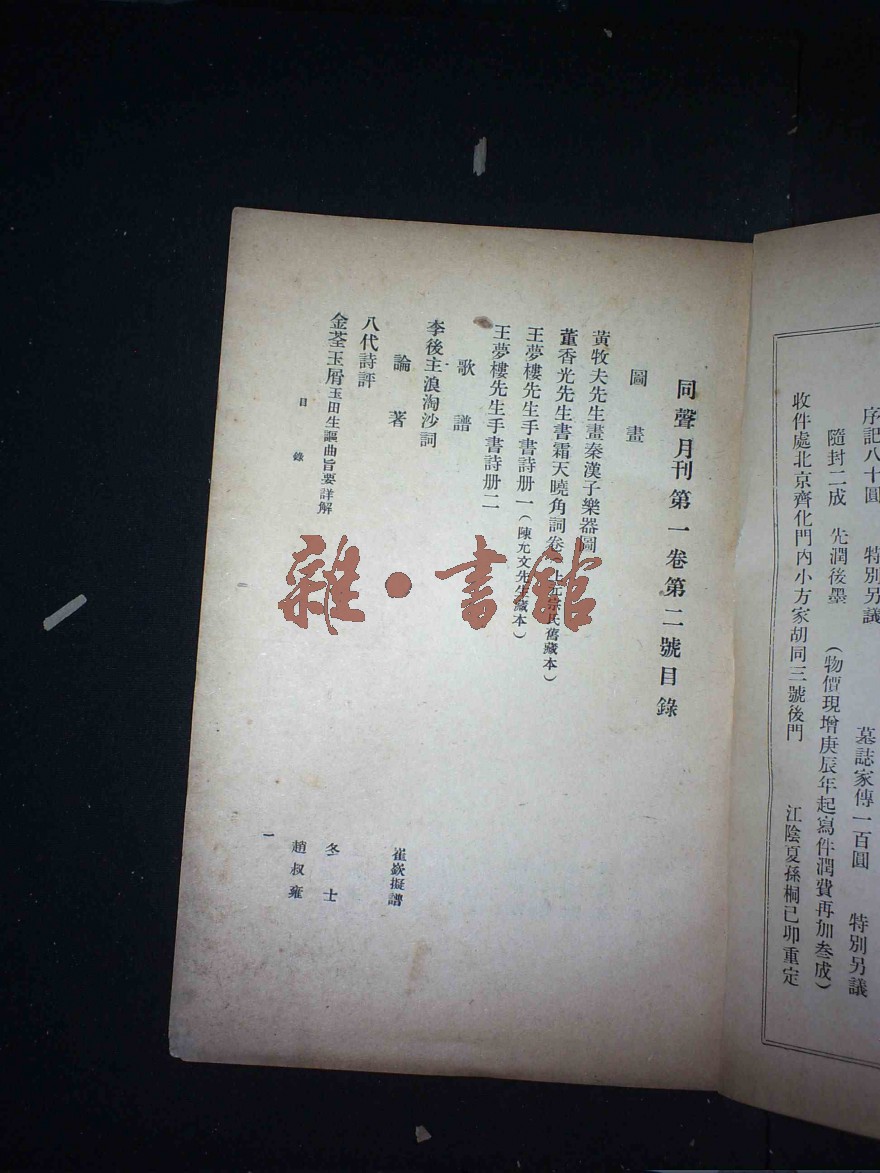 序記八十圓　特別另議　墓誌家傳一百圓　特別另議
隨封二成　先潤後墨　（物價現增庚辰年起寫件潤費再加叁成）
收件處北京齊化門內小方家胡同三號後門　江陰夏孫桐己卯重定
同聲月刊第一卷第二號目錄
圖畫
黃牧夫先生畫秦漢子樂器圖
董香光先生書霜天曉角詞卷 舊藏本）
王夢樓先生手書詩册一（陳允文先生藏本）
王夢樓先生手書詩册二
歌譜
李後主浪淘沙詞　崔嶔擬譜
論著
八代詩評　冬士
金荃玉屑玉田生謳曲旨要詳解　趙叔雍
目錄
一
雜·書館